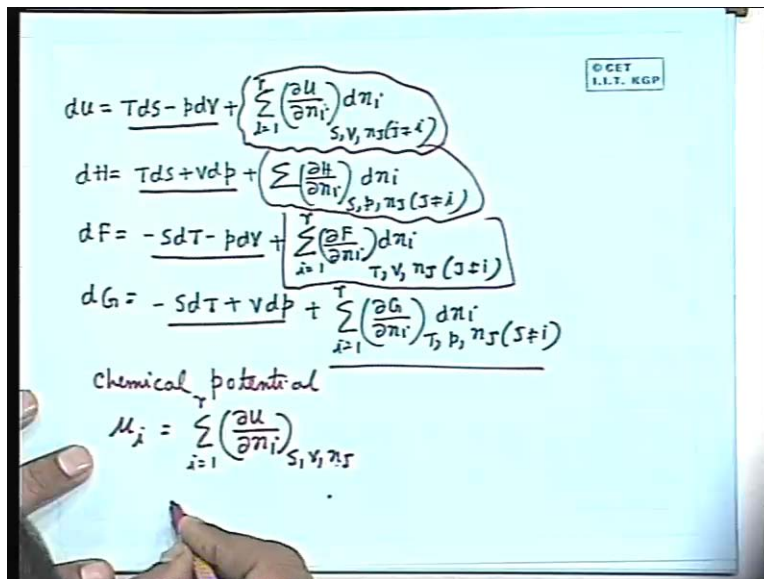 © CET
I.I.T. KGP
dU = TdS - pdV + \sum_{i=1}^{r} (∂U/∂n_i)_{S, V, n_J (J≠i)} dn_i
dH = TdS + Vdp + \sum (∂H/∂n_i)_{S, p, n_J (J≠i)} dn_i
dF = - SdT - pdV + \sum_{i=1}^{r} (∂F/∂n_i)_{T, V, n_J (J≠i)} dn_i
dG = - SdT + Vdp + \sum_{i=1}^{r} (∂G/∂n_i)_{T, p, n_J (J≠i)} dn_i
Chemical potential
μ_i = \sum_{i=1}^{r} (∂U/∂n_i)_{S, V, n_J}